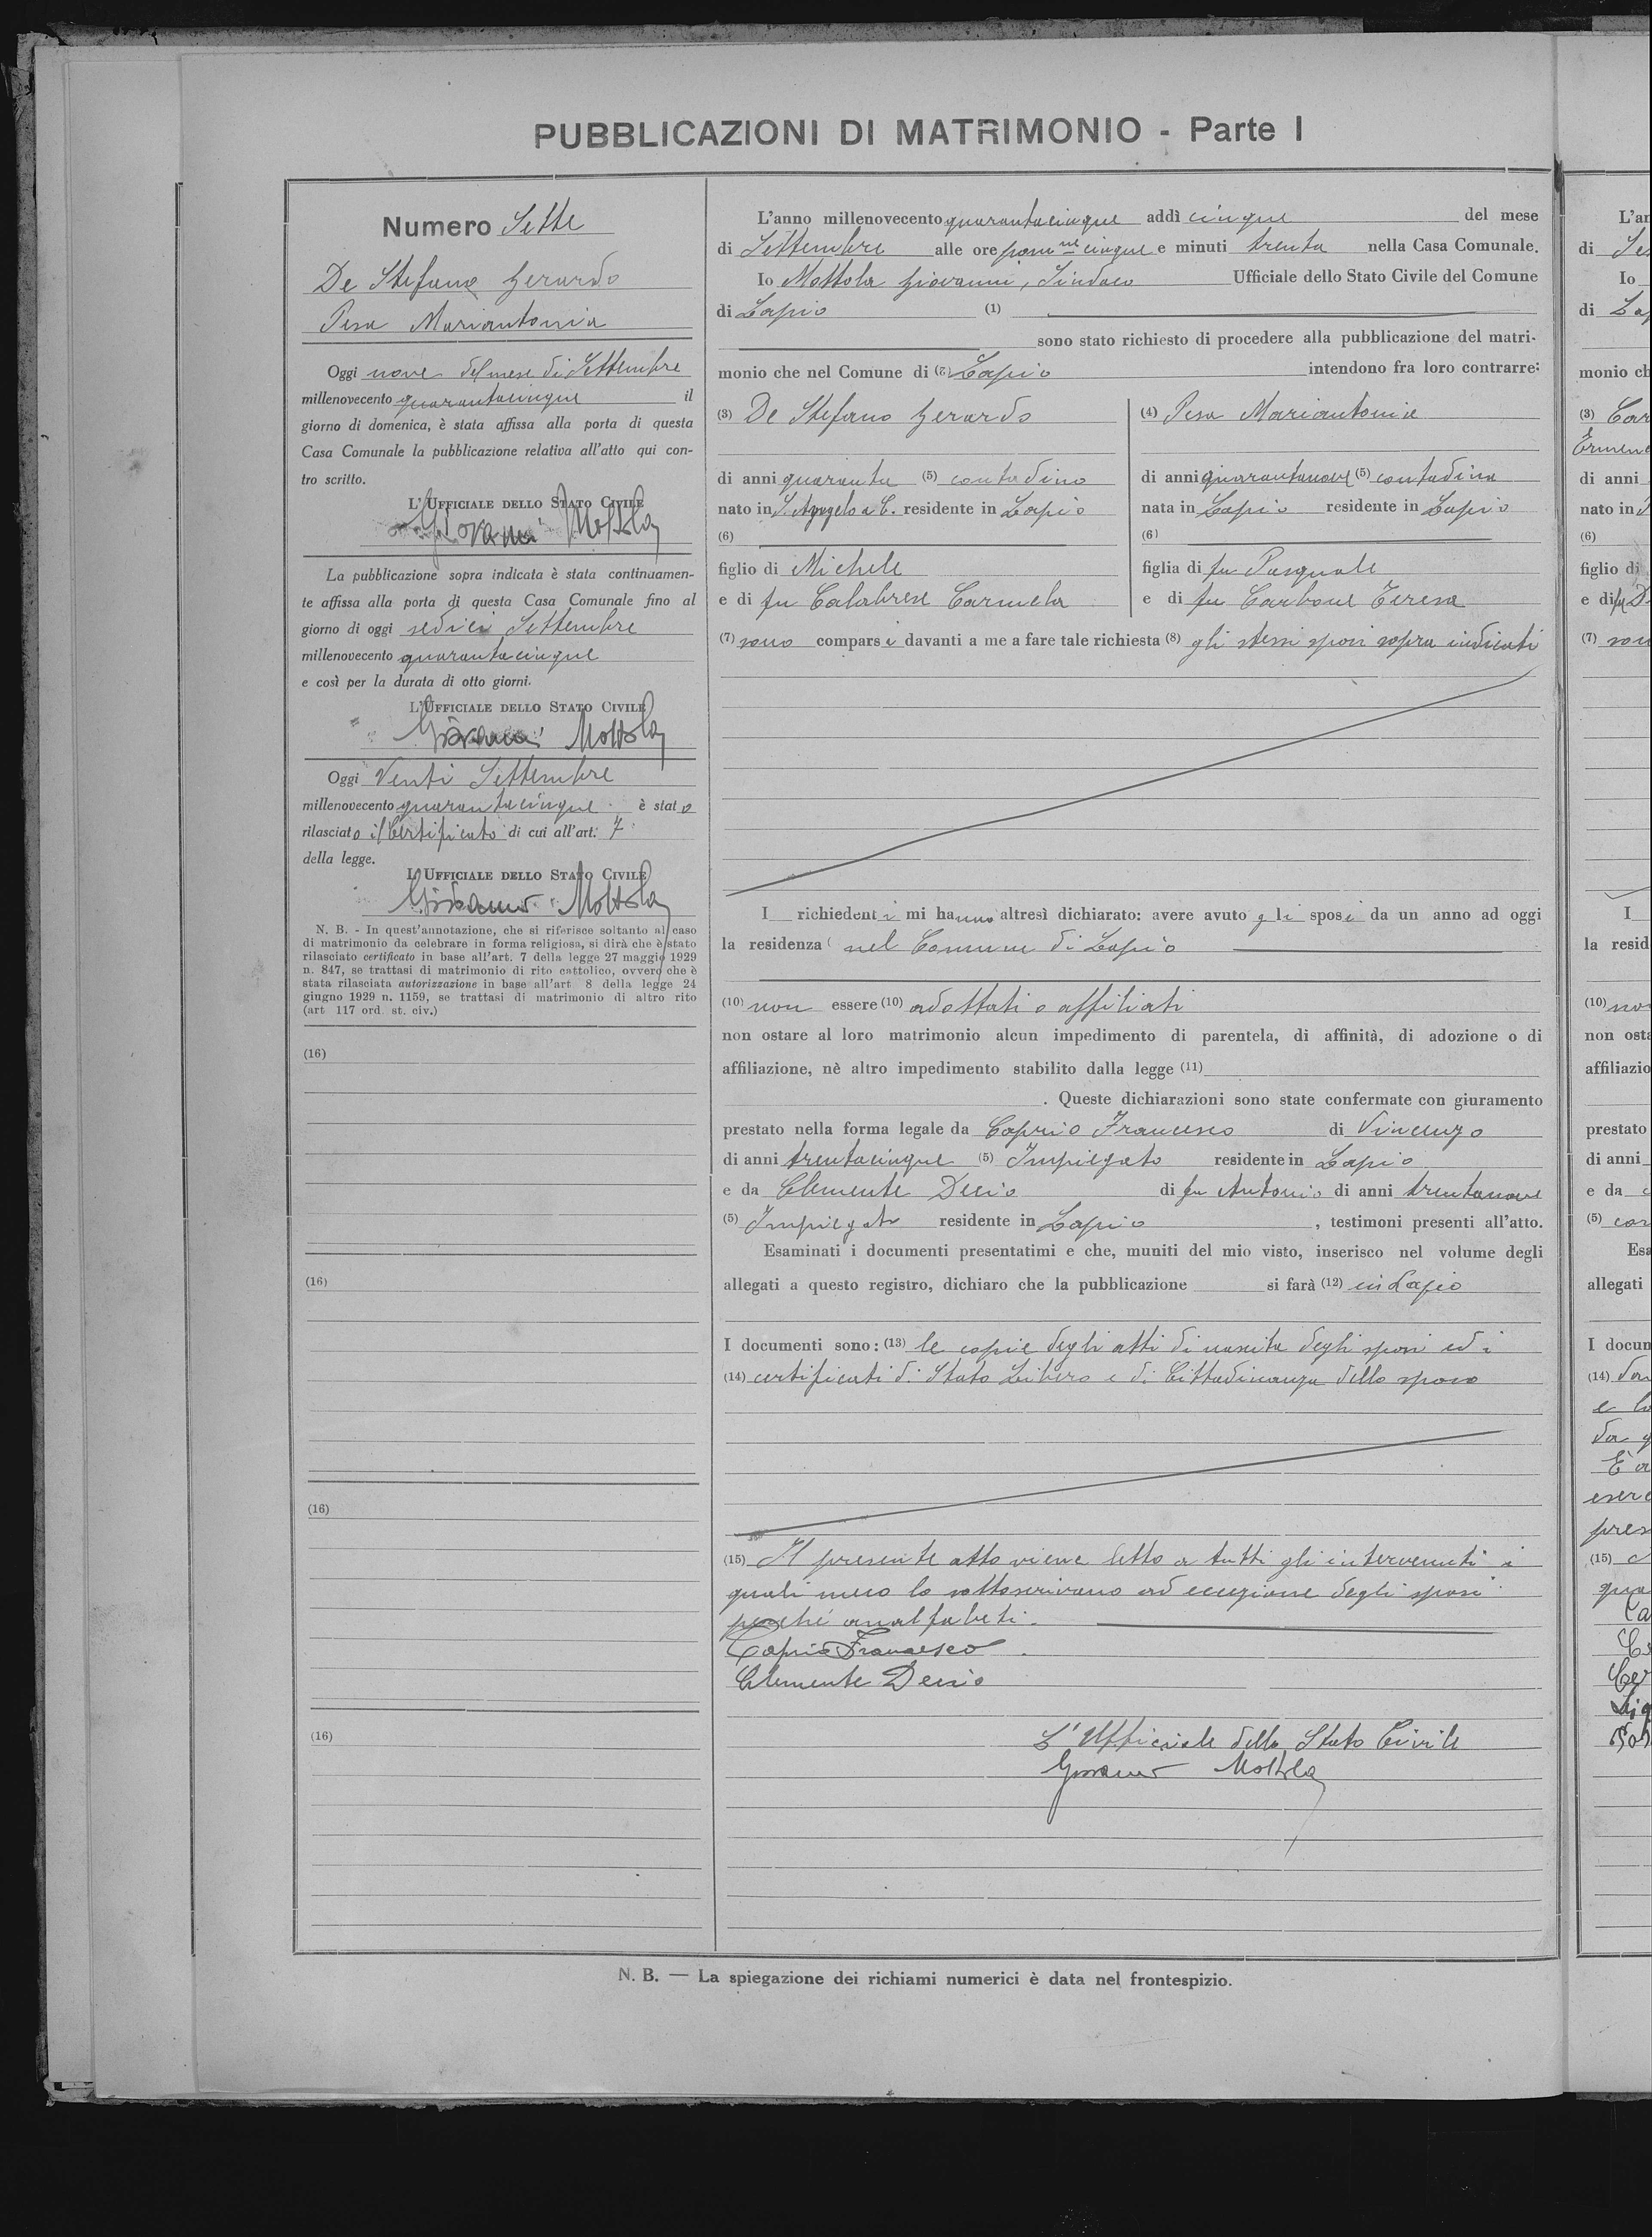 PUBBLICAZIONI DI MATRIMONIO - Parte I
Numero Sette
De Stefano Gerardo
Pesa Mariantonia
Oggi nove del mese di Settembre
millenovecento quarantacinque il
giorno di domenica, è stata affissa alla porta di questa
Casa Comunale la pubblicazione relativa all'atto qui con-
tro scritto.
L'UFFICIALE DELLO STATO CIVILE
Giovanni Mottola
La pubblicazione sopra indicata è stata continuamen-
te affissa alla porta di questa Casa Comunale fino al
giorno di oggi sedici Settembre
millenovecento quarantacinque
e così per la durata di otto giorni.
L'UFFICIALE DELLO STATO CIVILE
Giovanni Mottola
Oggi Venti Settembre
millenovecento quarantacinque è stato
rilasciato il Certificato di cui all'art. 7
della legge.
L'UFFICIALE DELLO STATO CIVILE
Giovanni Mottola
N. B. - In quest'annotazione, che si riferisce soltanto al caso
di matrimonio da celebrare in forma religiosa, si dirà che è stato
rilasciato certificato in base all'art. 7 della legge 27 maggio 1929
n. 847, se trattasi di matrimonio di rito cattolico, ovvero che è
stata rilasciata autorizzazione in base all'art 8 della legge 24
giugno 1929 n. 1159, se trattasi di matrimonio di altro rito
(art 117 ord. st. civ.)
(16)
(16)
(16)
(16)
L'anno millenovecento quarantacinque addì cinque del mese
di Settembre alle ore pom.ne cinque e minuti trenta nella Casa Comunale.
Io Mottola Giovanni, Sindaco Ufficiale dello Stato Civile del Comune
di Lapio (1)
sono stato richiesto di procedere alla pubblicazione del matri-
monio che nel Comune di (2) Lapio intendono fra loro contrarre:
(3) De Stefano Gerardo
di anni quaranta (5) contadino
nato in S. Angelo a C. residente in Lapio
(6)
figlio di Michele
e di fu Calabrese Carmela
(4) Pesa Mariantonia
di anni quarantanove (5) contadina
nata in Lapio residente in Lapio
(6)
figlia di fu Pasquale
e di fu Carbone Teresa
(7) sono comparsi davanti a me a fare tale richiesta (8) gli stessi sposi sopra indicati
I richiedenti mi hanno altresì dichiarato: avere avuto gli sposi da un anno ad oggi
la residenza nel Comune di Lapio
(10) non essere (10) adottati o affiliati
non ostare al loro matrimonio alcun impedimento di parentela, di affinità, di adozione o di
affiliazione, nè altro impedimento stabilito dalla legge (11)
. Queste dichiarazioni sono state confermate con giuramento
prestato nella forma legale da Caprio Francesco di Vincenzo
di anni trentacinque (5) Impiegato residente in Lapio
e da Clemente Decio di fu Antonio di anni trentanove
(5) Impiegato residente in Lapio, testimoni presenti all'atto.
Esaminati i documenti presentatimi e che, muniti del mio visto, inserisco nel volume degli
allegati a questo registro, dichiaro che la pubblicazione si farà (12) in Lapio
I documenti sono: (13) le copie degli atti di nascita degli sposi ed i
(14) certificati di Stato Libero e di Cittadinanza dello sposo
(15) Il presente atto viene letto a tutti gli intervenuti i
quali meco lo sottoscrivono ad eccezione degli sposi
perché analfabeti.
Caprio Francesco
Clemente Decio
L'Ufficiale dello Stato Civile
Giovanni Mottola
N. B. — La spiegazione dei richiami numerici è data nel frontespizio.